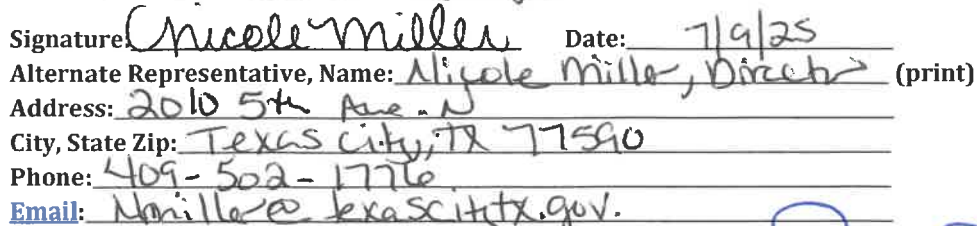 Signature: Nicole Miller Date: 7/9/25
Alternate Representative, Name: Nicole Miller, Director (print)
Address: 2010 5th Ave. N
City, State Zip: Texas City, TX 77590
Phone: 409-502-1776
Email: Nmiller@texascitytx.gov.